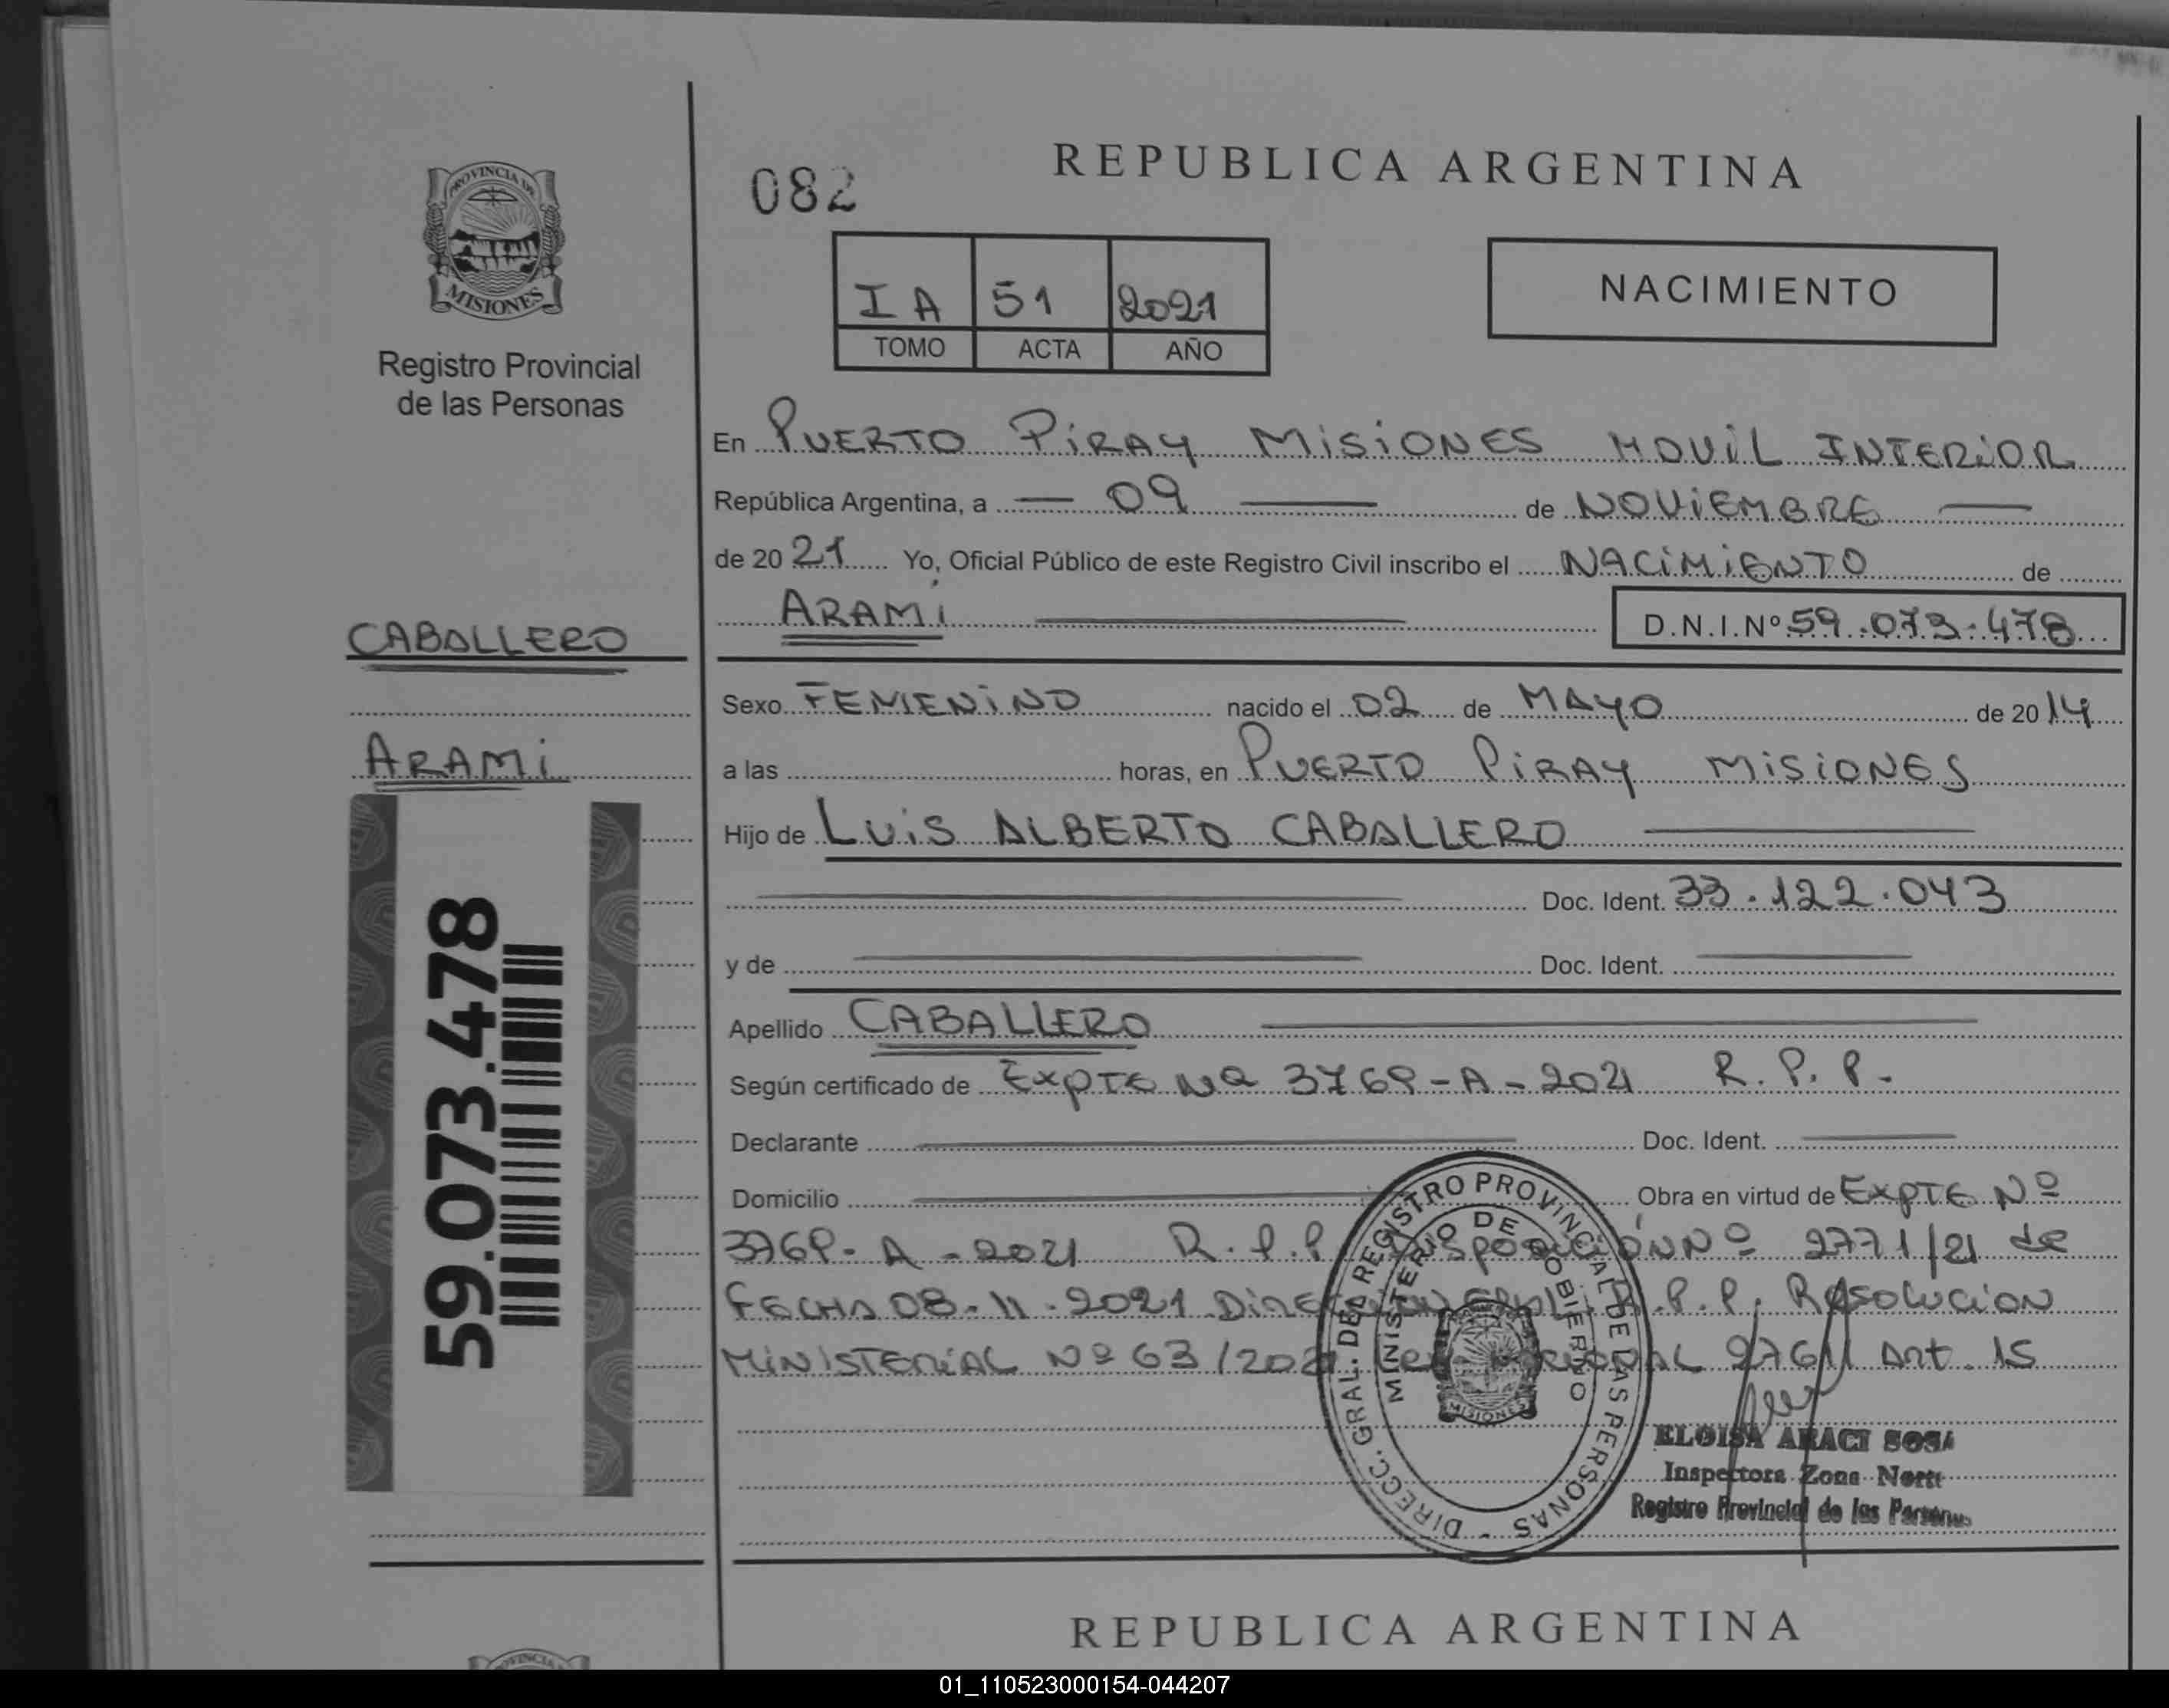 PROVINCIA DE
MISIONES
Registro Provincial
de las Personas
CABALLERO
ARAMI
59.073.478
082
REPUBLICA ARGENTINA
IA 51 2021
TOMO ACTA AÑO
NACIMIENTO
En PUERTO PIRAY MISIONES MOVIL INTERIOR
República Argentina, a 09 de NOVIEMBRE
de 2021 Yo, Oficial Público de este Registro Civil inscribo el NACIMIENTO de
ARAMI D.N.I.Nº 59.073.478
Sexo FEMENINO nacido el 02 de MAYO de 2014
a las horas, en PUERTO PIRAY MISIONES
Hijo de LUIS ALBERTO CABALLERO
Doc. Ident. 33.122.043
y de Doc. Ident.
Apellido CABALLERO
Según certificado de EXPTE Nº 3769-A-2021 R.P.P.
Declarante Doc. Ident.
Domicilio Obra en virtud de EXPTE Nº
3769-A-2021 R.P.P DISPOSICIÓN Nº 2771/21 de
FECHA 08-11-2021 DIRECCION GRAL. R.P.P. RESOLUCION
MINISTERIAL Nº 63/2021 NACIONAL Art. 15
DIRECC. GRAL. DEL REGISTRO PROVINCIAL DE LAS PERSONAS -
MINISTERIO DE GOBIERNO
MISIONES
ELOISA ARACI SOSA
Inspectora Zona Norte
Registro Provincial de las Personas
REPUBLICA ARGENTINA
01_110523000154-044207